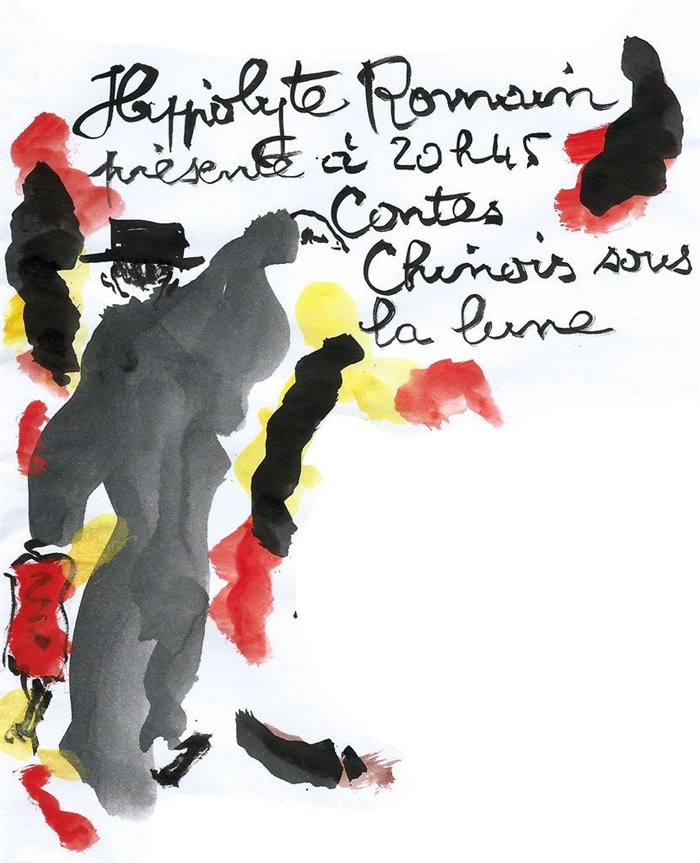 Hippolyte Romain
présente à 20h45
Contes
Chinois sous
la lune